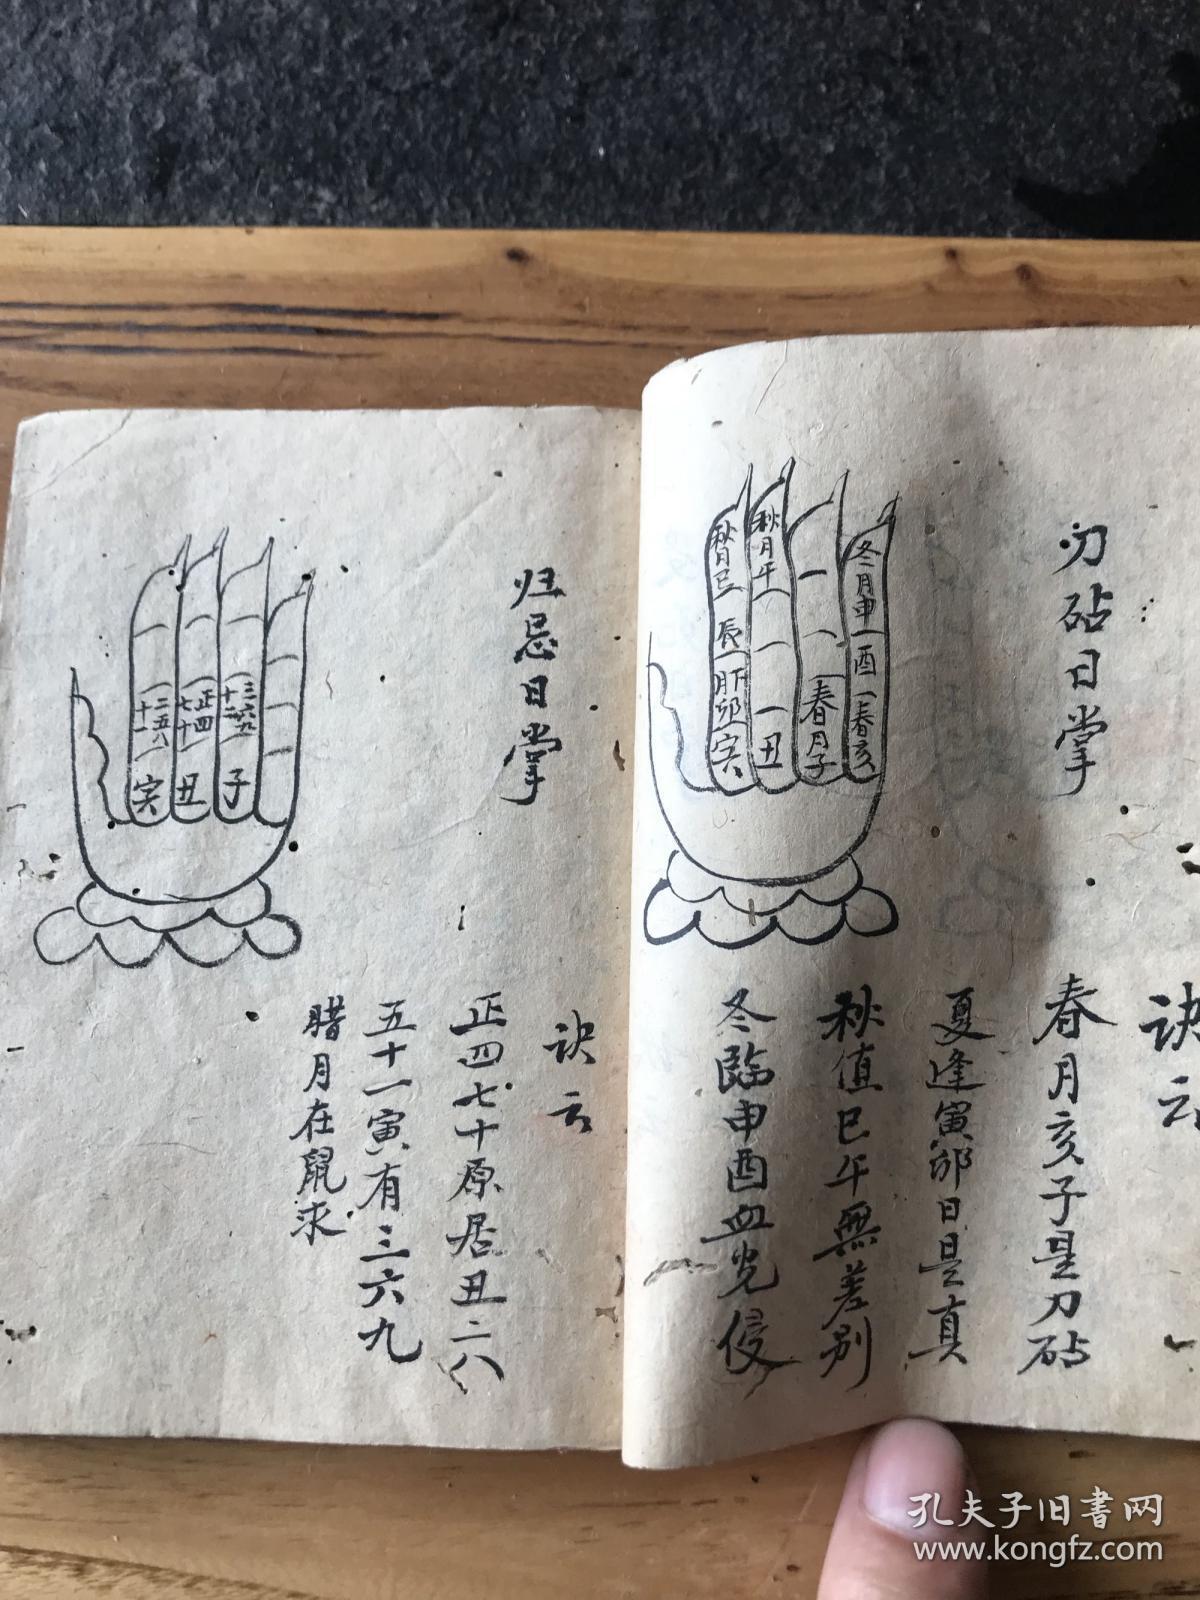 刀砧日掌
冬月申
酉
春亥
春月子
秋月午
丑
秋月巳
辰
卯
寅
诀云
春月亥子是刀砧
夏逢寅卯日是真
秋值巳午無差别
冬臨申酉血光侵
归忌日掌
三六九
十二
子
正四
七十
丑
二五八
十一
寅
诀云
正四七十原居丑二八
五十一寅有三六九
腊月在鼠求
孔夫子旧书网
www.kongfz.com